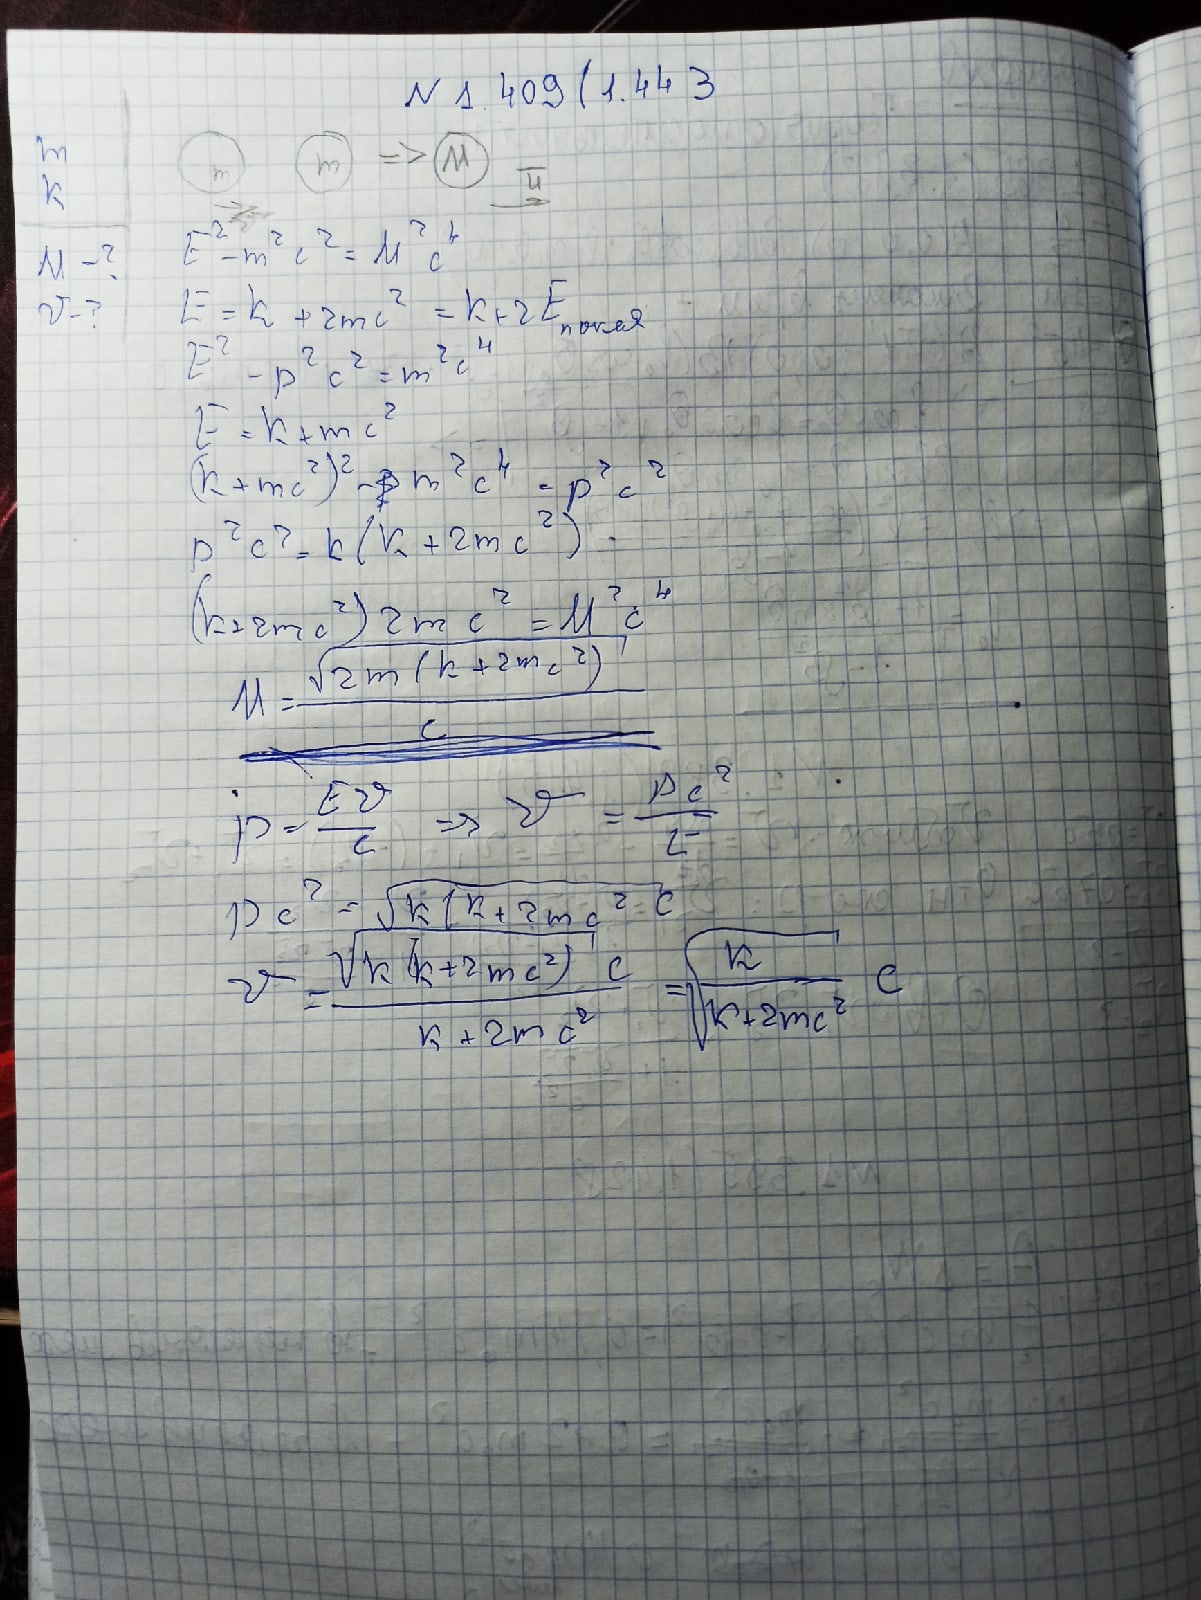 N 1.409 (1.443
m
k
M - ?
v - ?
m m => M u
E² - m²c² = M²c⁴
E = k + 2mc² = k + 2E покоя
E² - p²c² = m²c⁴
E = k + mc²
(k + mc²)² - m²c⁴ = p²c²
p²c² = k(k + 2mc²)
(k + 2mc²) 2mc² = M²c⁴
M = √(2m(k + 2mc²)) / c
p = Ev / c => v = pc² / E
pc² = √(k(k + 2mc² c
v = √(k(k + 2mc²)) c / (k + 2mc²) = √(k / (k + 2mc²)) c